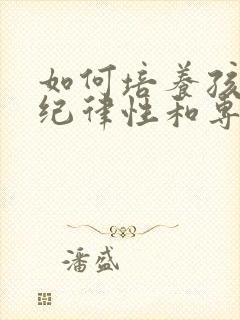 如何培养孩
纪律性和专
潘盛